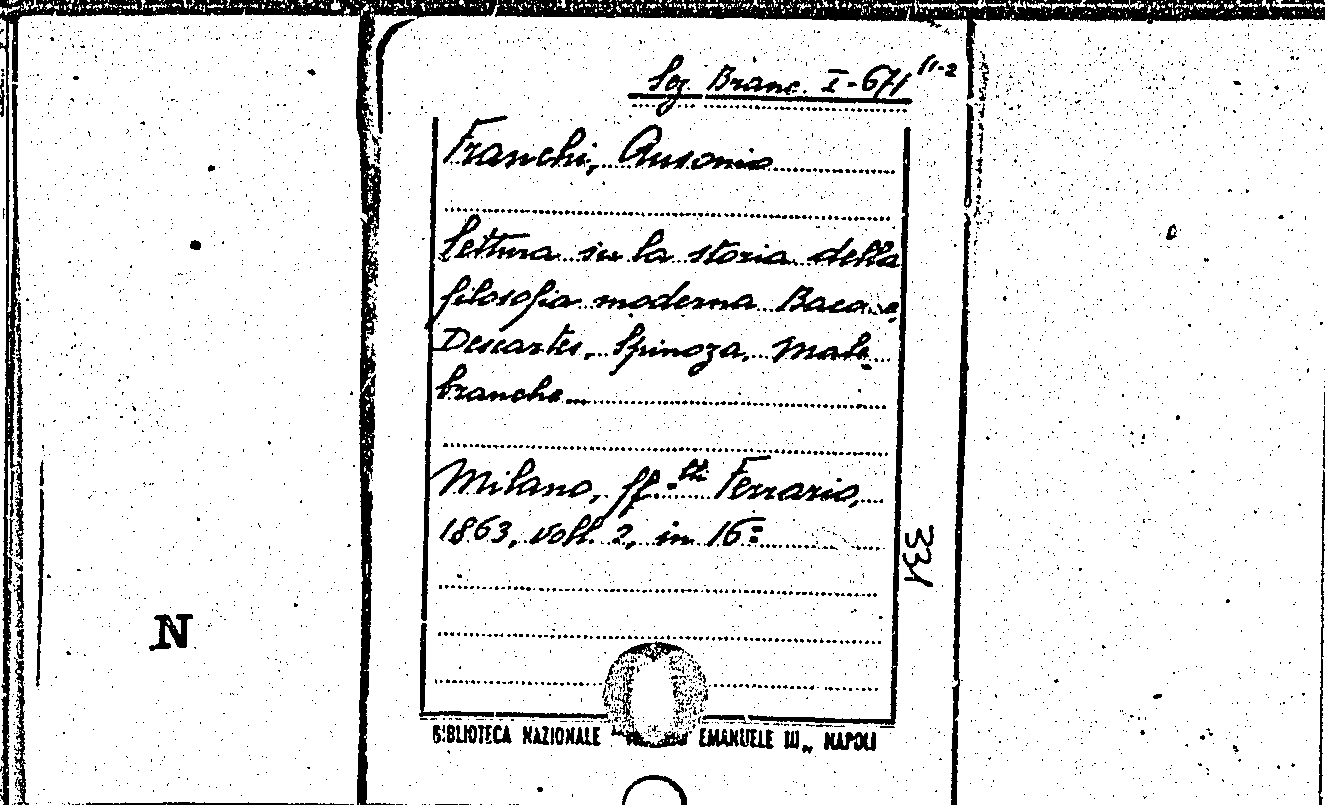 Sez. Branc. I-671 11-2
Franchi, Ausonio
Lettura su la storia della
filosofia moderna Bacone
Descartes, Spinoza, Male
branche
Milano, ff.lli Ferrario,
1863, voll. 2, in 16=
331
N
BIBLIOTECA NAZIONALE EMANUELE III„ NAPOLI